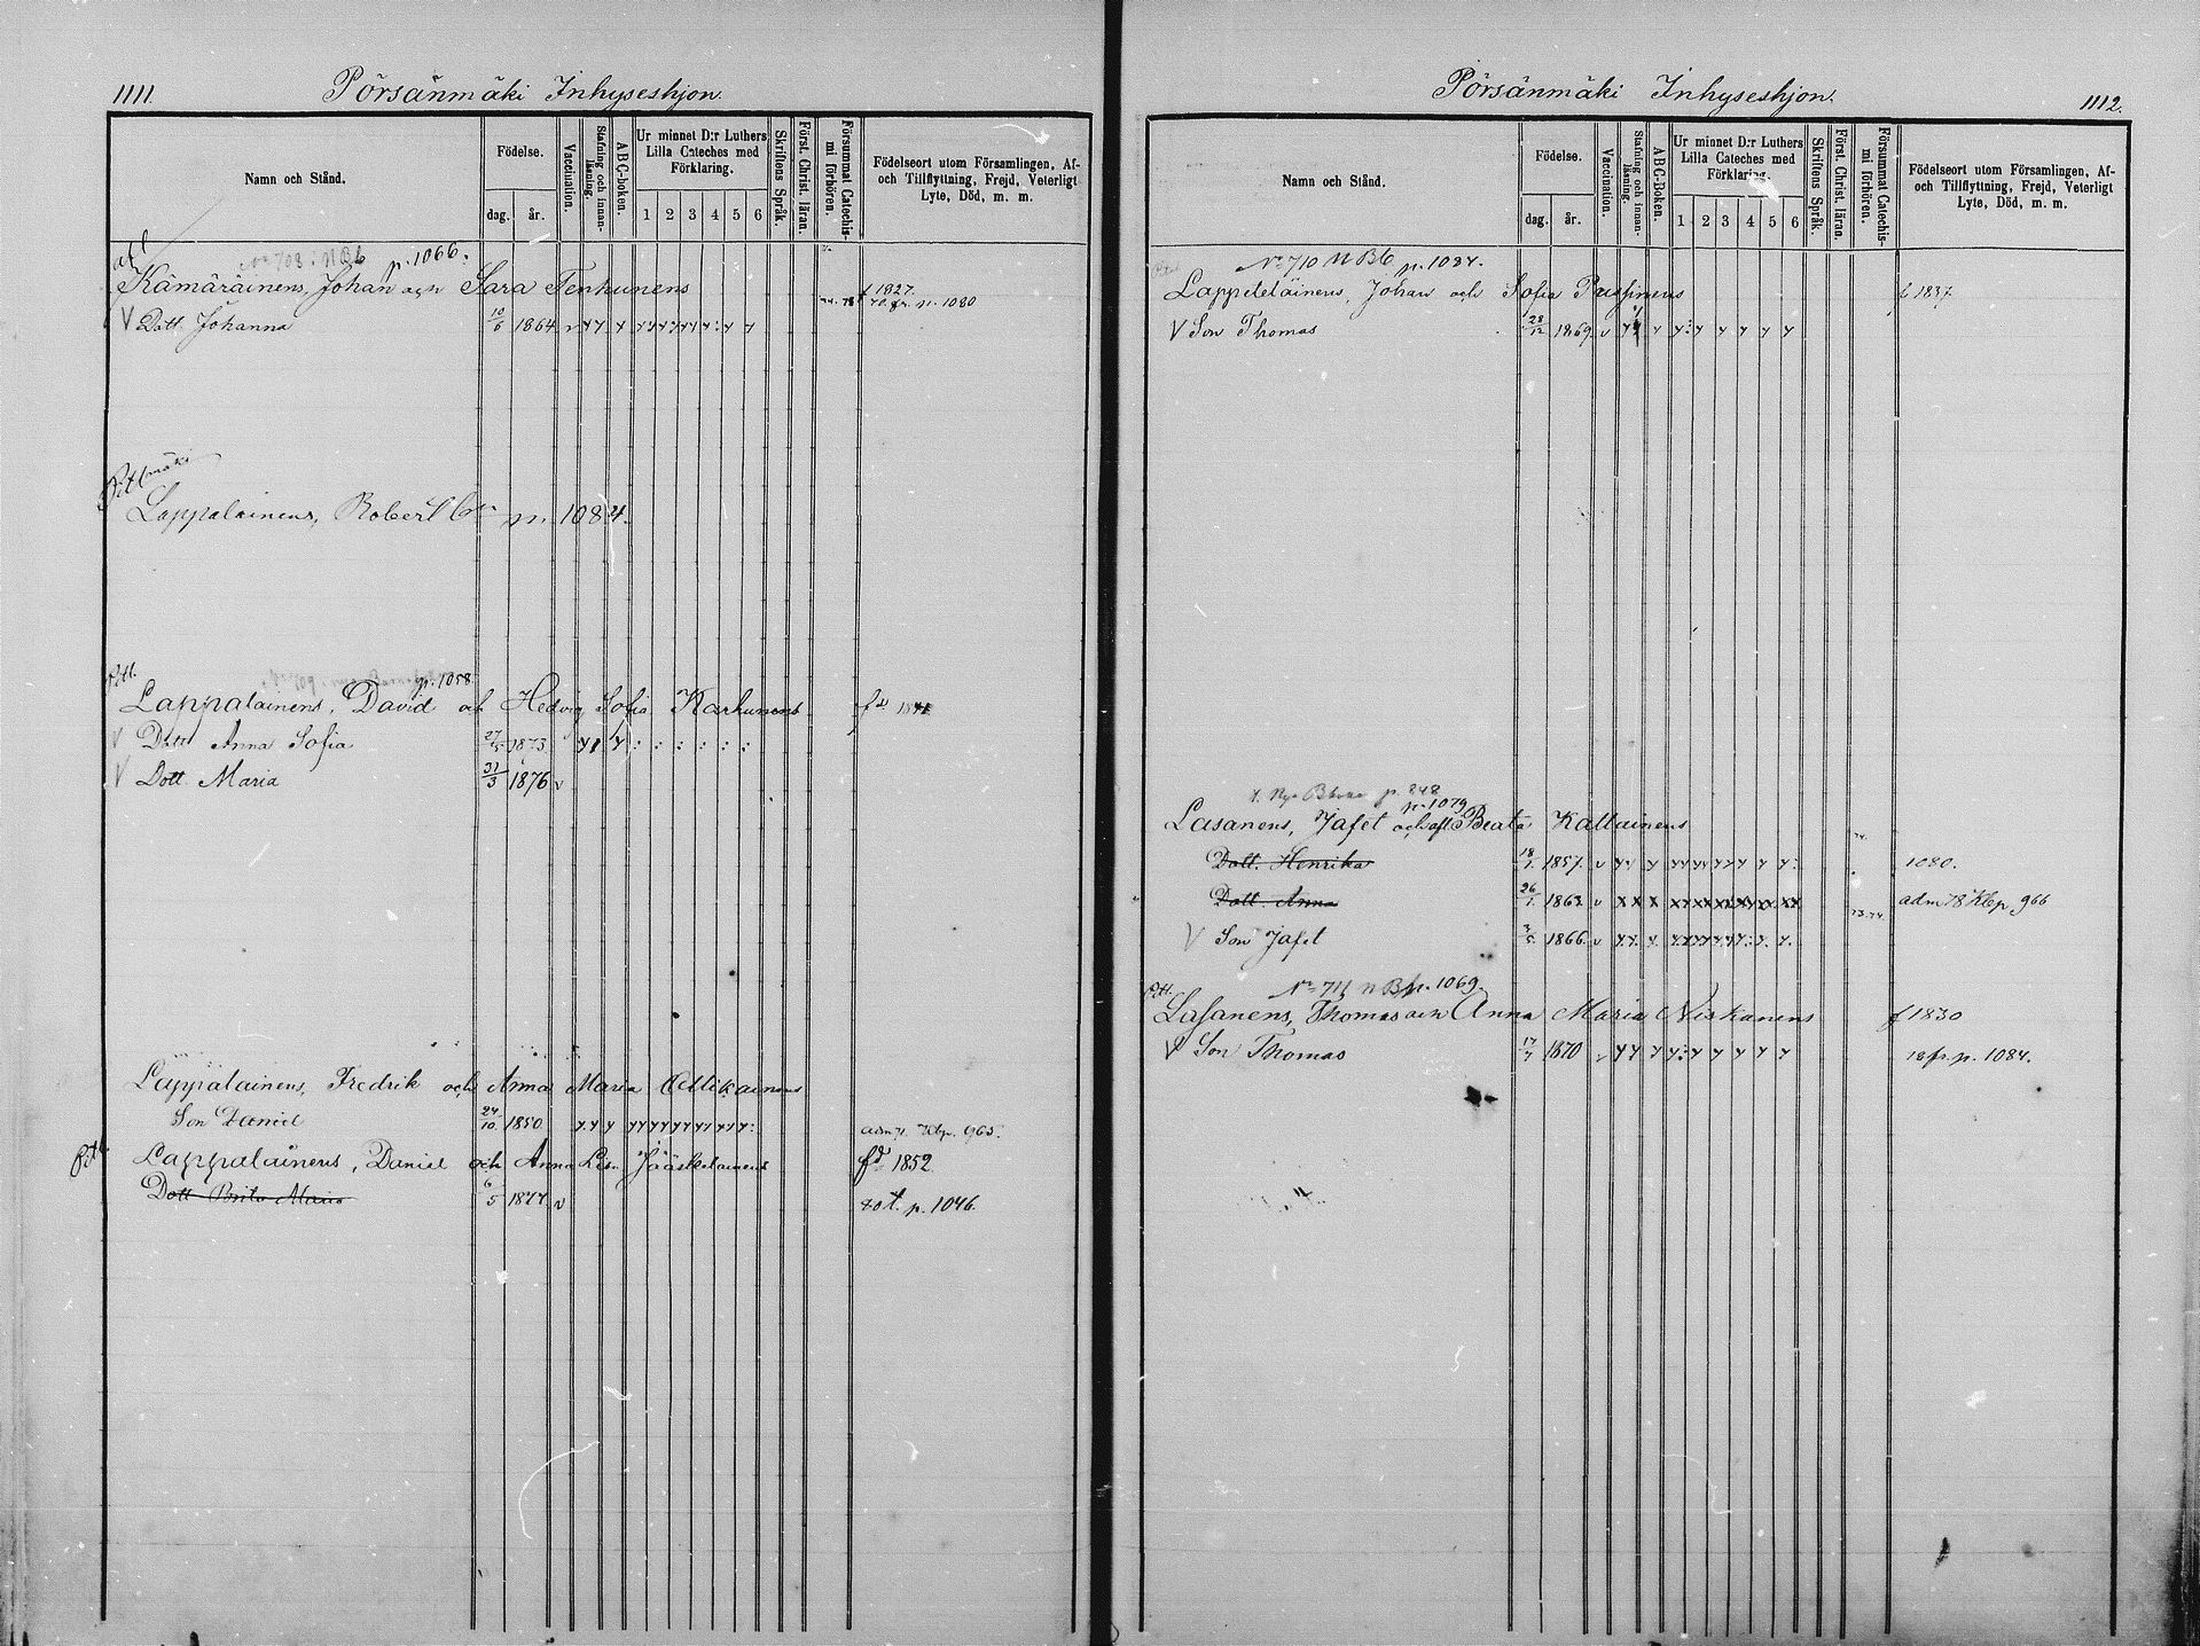 1111.
Pörsänmäki Inhyseshjon.
Namn och Stånd.
Födelse.
dag.
år.
Vaccination.
Stafning och innan-läsning.
ABC-boken.
Ur minnet D:r Luthers Lilla Cateches med Förklaring.
1 2 3 4 5 6
Skriftens Språk.
Först. Christ. läran.
Försummat Catechis-mi förhören.
Födelseort utom Församlingen, Af- och Tillflyttning, Frejd, Veterligt Lyte, Död, m. m.
p. 1066.
Kämäräinens, Johan och Sara Tenhunens f 1827.
V Dott. Johanna 10/6 1864 p. 1080
Pittmäki
Lappalainens, Robert p. 1084.
Pitt. p. 1058.
Lappalainens, David och Hedvig Sofia Karhunens
V Dott Anna Sofia 27/5 1873
V Dott. Maria 31/3 1876 v
Lappalainens, Fredrik och Anna Maria
Son Daniel 24/10 1850 adm 71 Kbp. 965.
Lappalainens, Daniel och Anna Lisa Jääskelainens fd 1852
Dott Brita Maria 6/5 1877 v p. 1046.
Pörsänmäki Inhyseshjon.
1112.
Namn och Stånd.
Födelse.
dag.
år.
Vaccination.
Stafning och innan-läsning.
ABC-Boken.
Ur minnet D:r Luthers Lilla Cateches med Förklaring.
1 2 3 4 5 6
Skriftens Språk.
Först. Christ. läran.
Försummat Catechis-mi förhören.
Födelseort utom Församlingen, Af- och Tillflyttning, Frejd, Veterligt Lyte, Död, m. m.
No 710 NBb p. 1084.
Johan och Sofia f 1837
V Son Thomas 28/12 1869 v
p. 248
p. 1079
Lasanens, Jafet och Beata Kattainens
Dott. Henrika 18/1 1857. v 1080.
Dott. Anna 26/1 1863 v adm 78 Kbp 966
V Son Jafet 3/5 1866 v
Pitt. No 711 p. 1069.
Lasanens, Thomas och Anna Maria Niskanens f 1830
V Son Thomas 17/7 1870 18 fr. p. 1084.